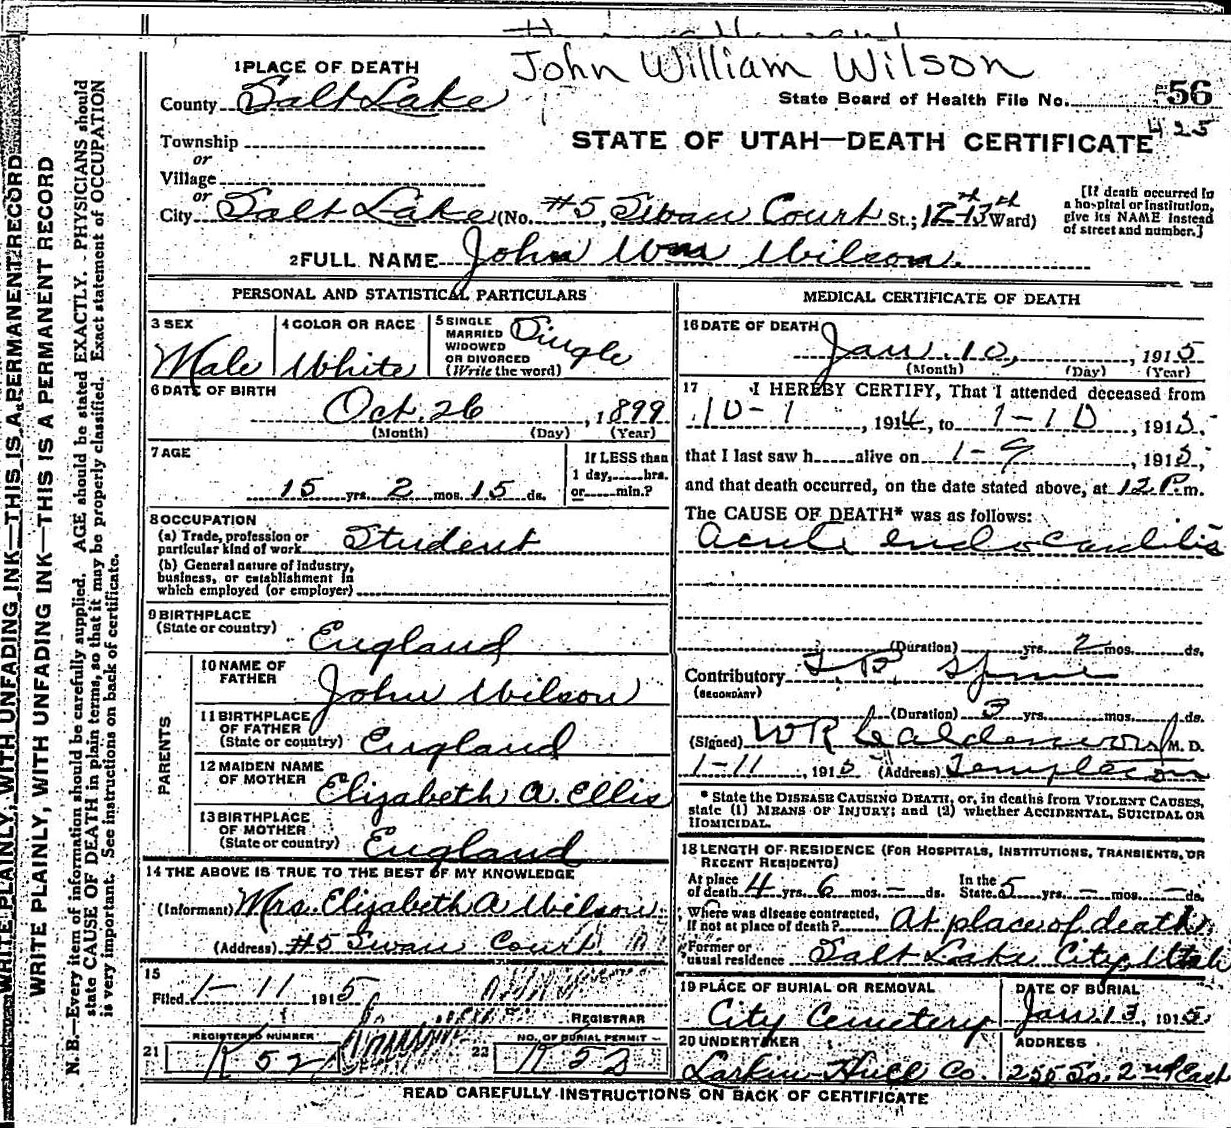 John William Wilson
1 PLACE OF DEATH
County Salt Lake
State Board of Health File No. 56
425
STATE OF UTAH—DEATH CERTIFICATE
Township
or
Village
or
City Salt Lake (No. #5, Swan Court St.; 12-13th Ward)
[If death occurred in a hospital or institution, give its NAME instead of street and number.]
2 FULL NAME John Wm Wilson.
PERSONAL AND STATISTICAL PARTICULARS
3 SEX
Male
4 COLOR OR RACE
White
5 SINGLE
MARRIED
WIDOWED
OR DIVORCED
(Write the word)
Single
6 DATE OF BIRTH
Oct. 26, 1899
(Month) (Day) (Year)
7 AGE
15 yrs. 2 mos. 15 ds.
If LESS than
1 day,......hrs.
or......min.?
8 OCCUPATION
(a) Trade, profession or
particular kind of work Student
(b) General nature of industry,
business, or establishment in
which employed (or employer)
9 BIRTHPLACE
(State or country) England
PARENTS
10 NAME OF
FATHER John Wilson
11 BIRTHPLACE
OF FATHER
(State or country) England
12 MAIDEN NAME
OF MOTHER Elizabeth A. Ellis
13 BIRTHPLACE
OF MOTHER
(State or country) England
14 THE ABOVE IS TRUE TO THE BEST OF MY KNOWLEDGE
(Informant) Mrs. Elizabeth A Wilson.
(Address) #5 Swan Court.
15
Filed 1-11 1915
REGISTRAR
21 REGISTERED NUMBER
K 52
22 NO. OF BURIAL PERMIT
K 52
MEDICAL CERTIFICATE OF DEATH
16 DATE OF DEATH
Jan. 10, , 1915
(Month) (Day) (Year)
17 I HEREBY CERTIFY, That I attended deceased from
10-1, 1914, to 1-10, 1915.
that I last saw h......alive on 1-9, 1915,
and that death occurred, on the date stated above, at 12 P.m.
The CAUSE OF DEATH* was as follows:
Acute endocarditis
(Duration) yrs. 2 mos. ds.
Contributory T.B. Spine
(SECONDARY)
(Duration) 3 yrs. mos. ds.
(Signed) WR Calderwood M. D.
1-11, 1915 (Address) Templeton
* State the DISEASE CAUSING DEATH, or, in deaths from VIOLENT CAUSES,
state (1) MEANS OF INJURY; and (2) whether ACCIDENTAL, SUICIDAL OR
HOMICIDAL.
18 LENGTH OF RESIDENCE (FOR HOSPITALS, INSTITUTIONS, TRANSIENTS, OR
RECENT RESIDENTS)
At place
of death 4 yrs. 6 mos. – ds.
In the
State 5 yrs. – mos. – ds.
Where was disease contracted,
If not at place of death? At place of death
Former or
usual residence Salt Lake City, Utah
19 PLACE OF BURIAL OR REMOVAL
City Cemetery
DATE OF BURIAL
Jan. 13, 1915
20 UNDERTAKER
Larkin Hull Co.
ADDRESS
255 So. 2nd East
READ CAREFULLY INSTRUCTIONS ON BACK OF CERTIFICATE
WRITE PLAINLY, WITH UNFADING INK—THIS IS A PERMANENT RECORD
WRITE PLAINLY, WITH UNFADING INK—THIS IS A PERMANENT RECORD
N. B.—Every item of information should be carefully supplied. AGE should be stated EXACTLY. PHYSICIANS should
state CAUSE OF DEATH in plain terms, so that it may be properly classified. Exact statement of OCCUPATION
is very important. See instructions on back of certificate.